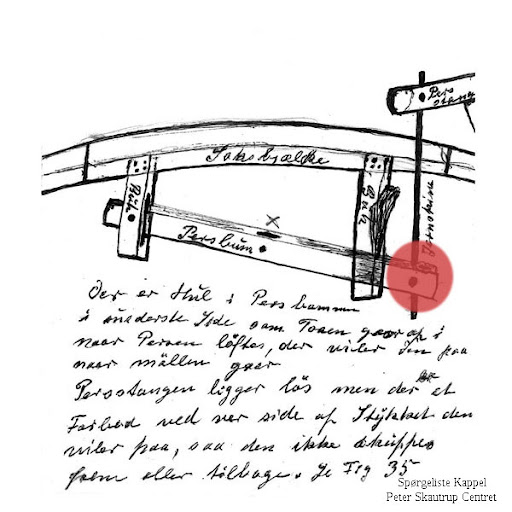 Pers
stang
Jernstang
Buk
Persbum
X
Der er Hul i Persbummen
i underste Side som Toen gaar op i
naar Persen löftes, der viler den paa
naar möllen gaar
Persstangen ligger lös men der er et
Forbed ved ver side af Stÿkket den
viler paa, saa den ikke skuppes
frem eller tilbage. Se Fig 35
Spørgeliste Kappel
Peter Skautrup Centret